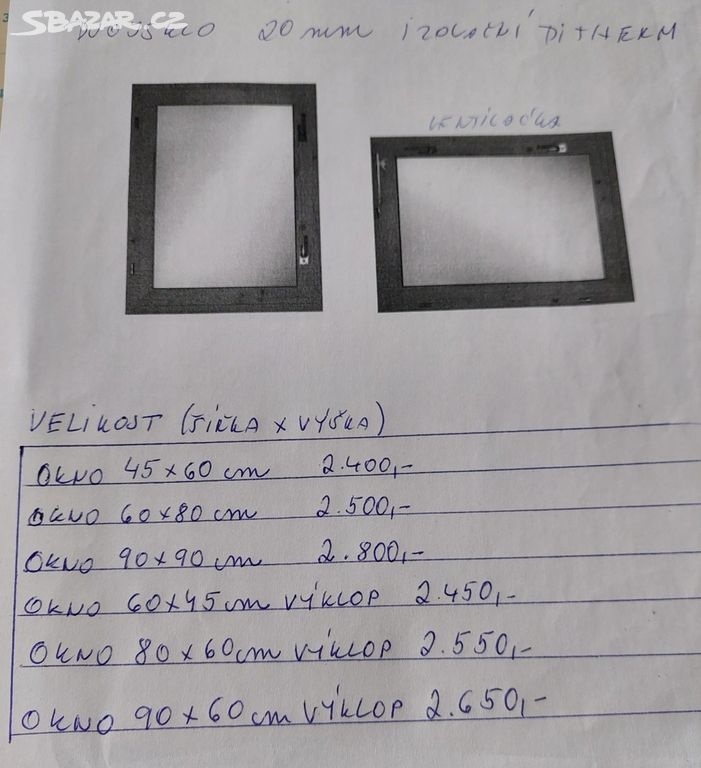 SBAZAR.CZ
DVOJSKLO 20 mm IZOLAČNÍ DITHERM
VENTILAČKA
VELIKOST (ŠÍŘKA x VÝŠKA)
OKNO 45x60 cm 2.400,-
OKNO 60x80 cm 2.500,-
OKNO 90x90 cm 2.800,-
OKNO 60x45cm VÝKLOP 2.450,-
OKNO 80x60cm VÝKLOP 2.550,-
OKNO 90x60cm VÝKLOP 2.650,-